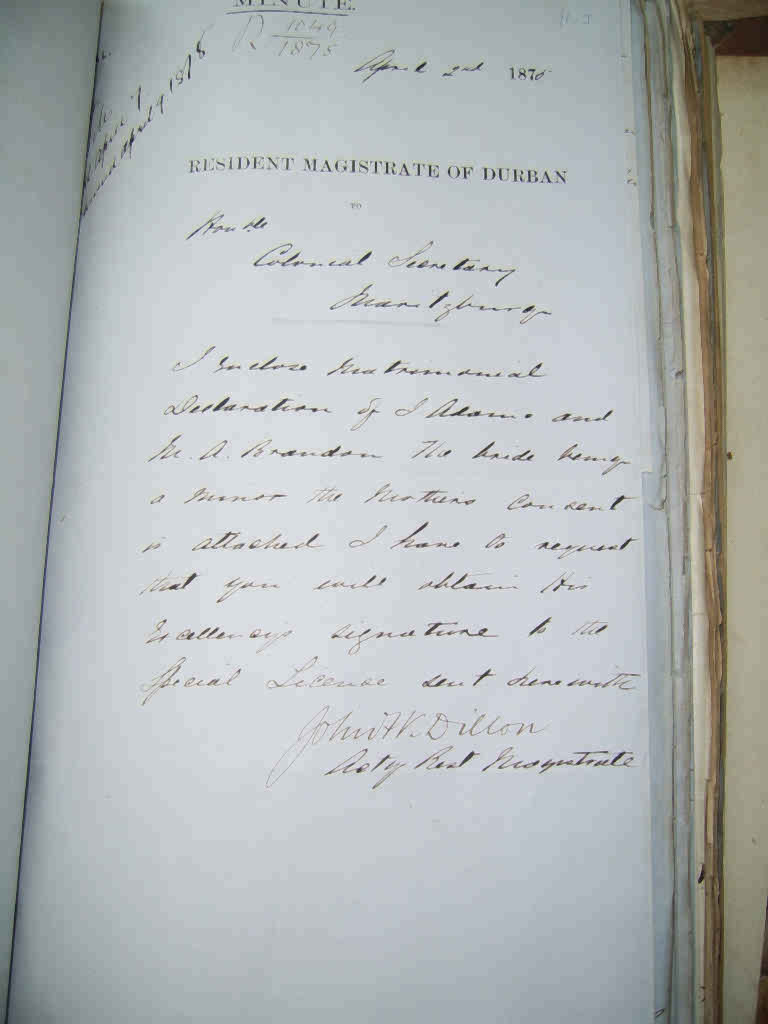 MINUTE.
R 1049
1878
April 2nd 1878
April 9 1878
RESIDENT MAGISTRATE OF DURBAN
TO
Honble
Colonial Secretary
Maritzburg
I enclose Matrimonial
Declaration of I Adams and
M. A. Brandon The bride being
a minor the Mothers consent
is attached I have to request
that you will obtain His
Excellency's signature to the
Special License sent herewith
John W. Dillon
Actg Rest Magistrate